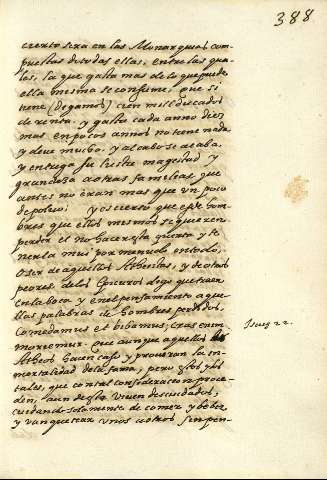 388
cierto sera en las Monarquias com-
puestas de todas ellas, entre las qua-
les, la que gasta mas de lo que puede
ella mesma se consume, que si
tiene (digamos) cien mill ducados
de renta, y gasta cada anno diez
mas en pocos annos no tene nada
y deve mucho, y al cabo se acaba,
y entrega su lustre magestad y
grandeza a otras famelias que
antes no eran mas que un poco
de polvo; y es cierto que esos hom-
bres que ellos mesmos se quieren
perder el no hacer esta quenta y te-
nerla muy por menudo en todo,
o ser de aquellos Atheistas, y de otros
peores de los Epicuros digo que traen
en la boca y en el pensamiento aque-
llas palabras de hombres perdidos.
Comedamus et bibamus, cras enim
moriemur. que aunque aquellos
Atheos hacen caso y provaron la in-
mortalidad de la fama, pero estos
tales, que con tal consideracion proce-
den, aun desto viven descuidados,
cuidando solamente de comer y beber
y van que errar unos a otros sin pen-
Isay 22.